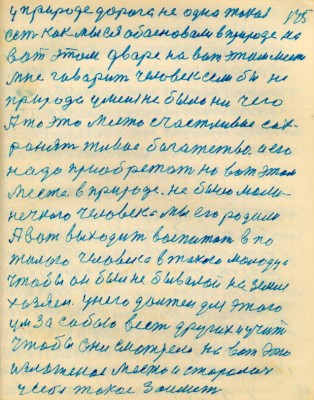 у природе дорога не одна такая 175
есть как мы ся обосновали в природе на
вот этом дворе на вот этом месте
мне говорит человек если бы не
природа у меня не было ни чего
А то это место счастливые сох-
ранят живое богатство. и его
надо приобретать но вот этом
месте в природе. не было мало-
нечкого человека мы его родили
А вот выходит воспитать в по
жилого человека в такого молодца
чтобы он был не бывалой на земли
хозяем. у него должен для этого
ум за собою вест других и учит
чтобы они смотрели на вот это
изложеное место и старалис
у себя такое Зоимет